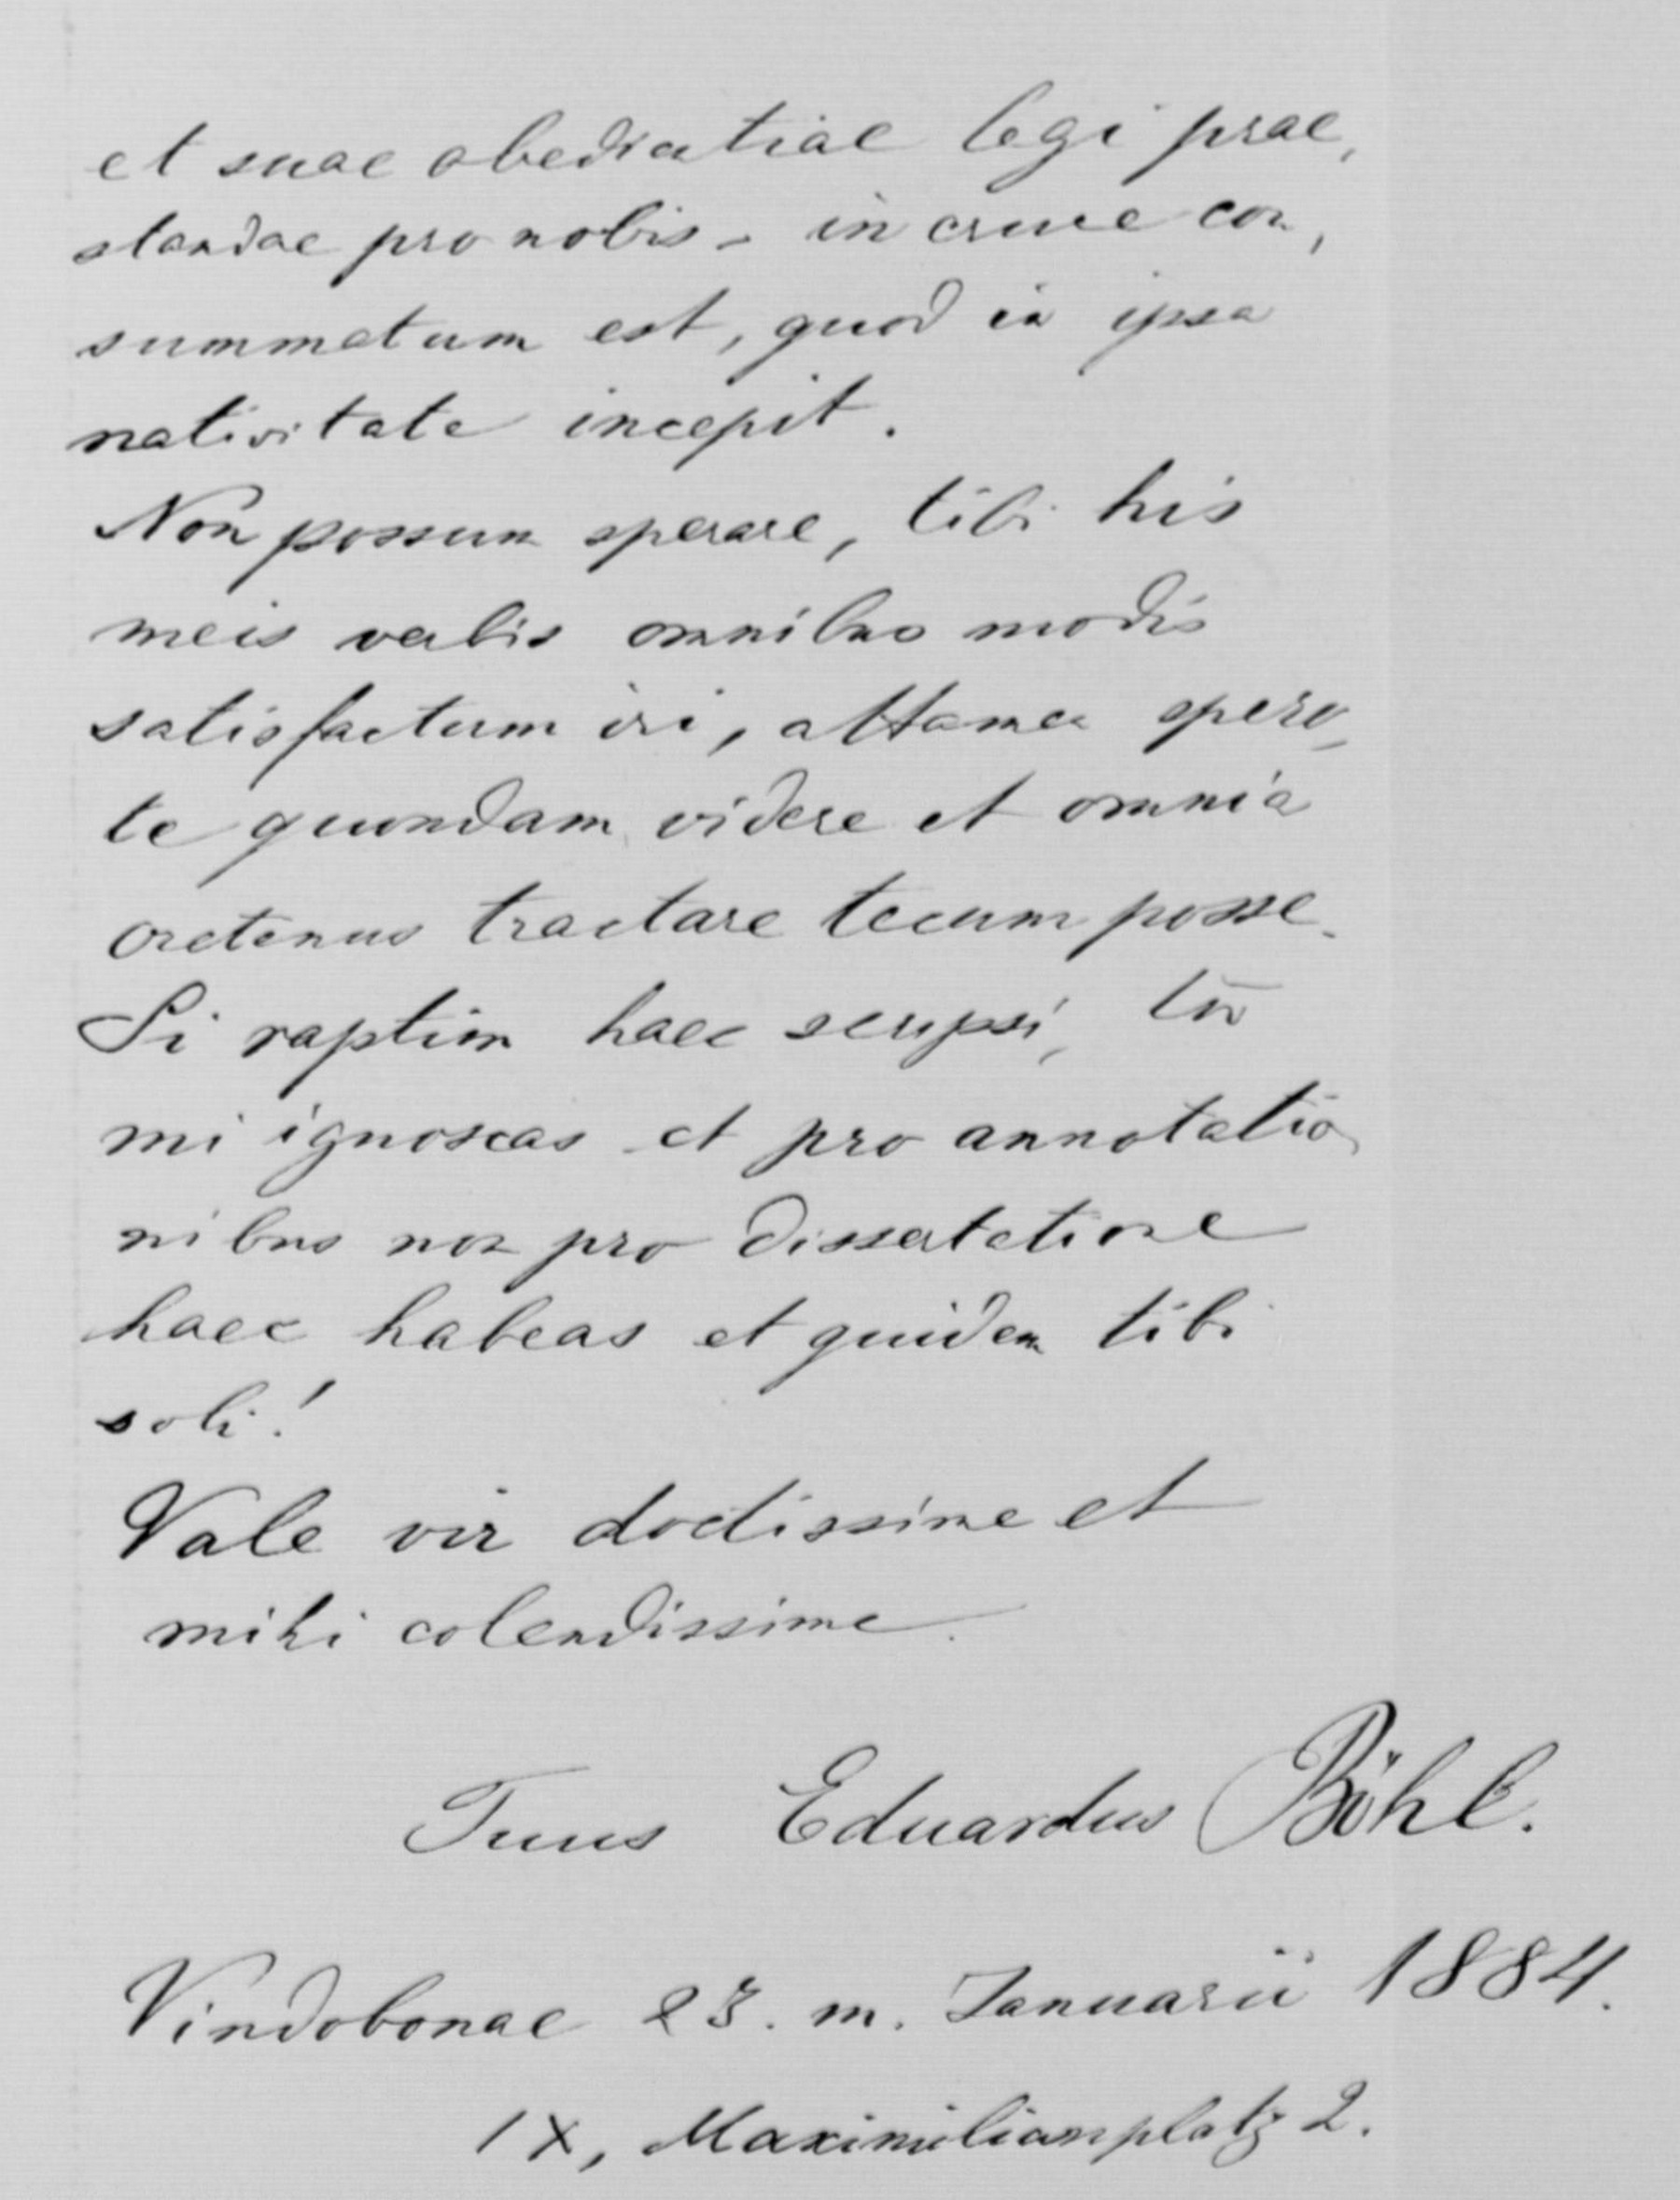 et suae obedientiae legi prae,
standae pro nobis - in cruce con,
summatum est, quod in ipsa
nativitate incepit.
Non possum sperare, tibi his
meis verbis omnibus modis
satisfactum iri, attamen spero,
te quondam videre et omnia
oretenus tractare tecum posse.
Si raptim haec scripsi, tu
mi ignoscas et pro annotatio,
nibus non pro dissertatione
haec habeas et quidem tibi
soli!
Vale vir doctissime et
mihi colendissime.
Tuus Eduardus Böhl.
Vindobonae 23. m. Januarii 1884.
IX, Maximilianplatz 2.